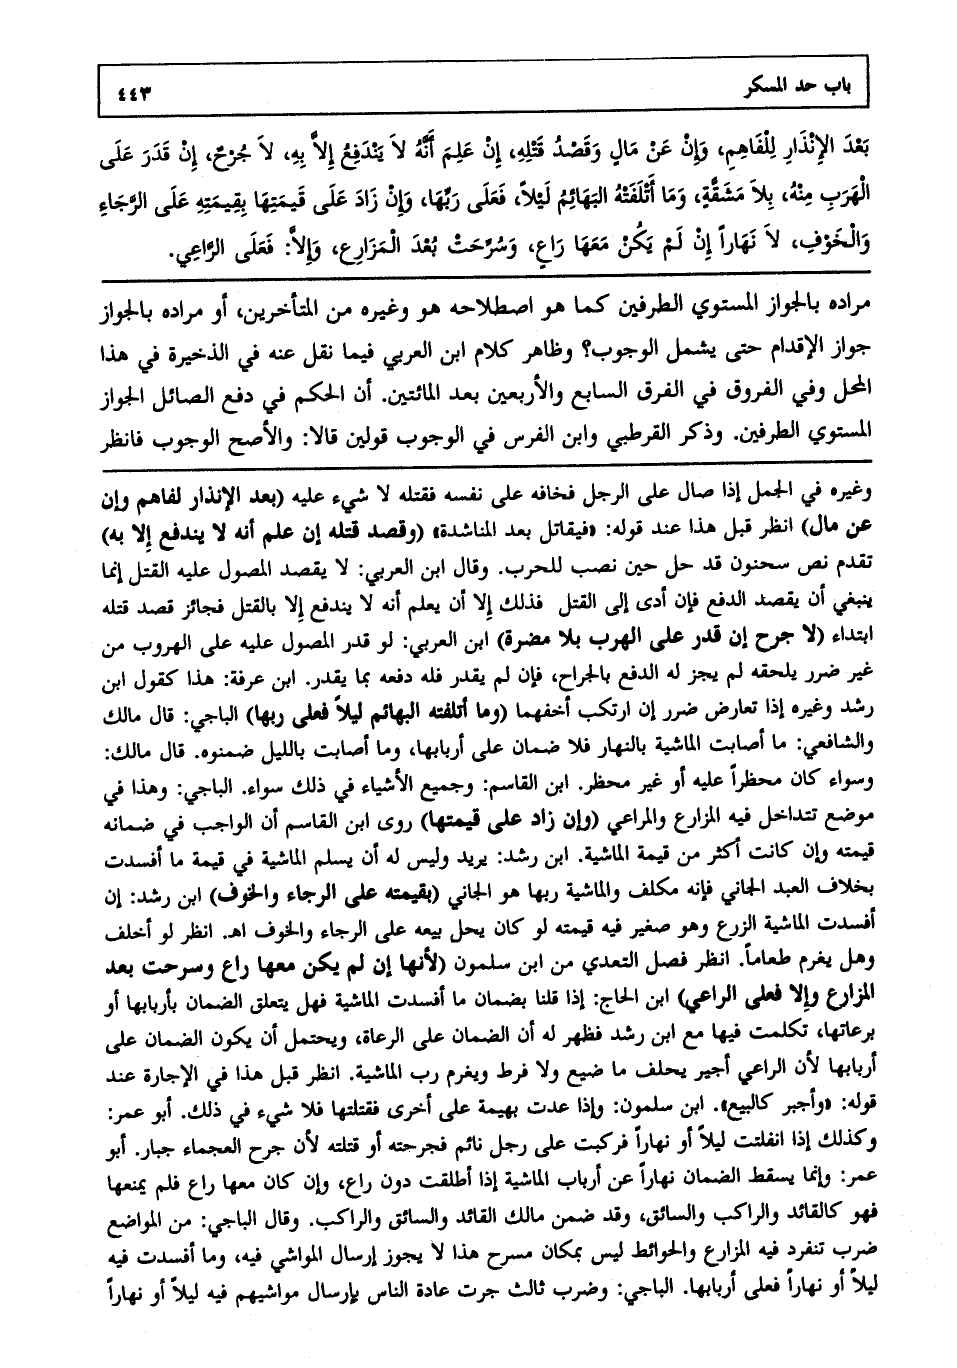 باب حد المسكر
٤٤٣
بَعْدَ الإِنْذَارِ لِلْفَاهِمِ، وَإِنْ عَنْ مَالٍ وَقَصْدُ قَتْلِهِ، إِنْ عَلِمَ أَنَّهُ لاَ يَنْدَفِعُ إِلاَّ بِهِ، لاَ جُرْحٌ، إِنْ قَدَرَ عَلَى
الْهَرَبِ مِنْهُ، بِلاَ مَشَقَّةٍ، وَمَا أَتْلَفَتْهُ البَهَائِمُ لَيْلاً، فَعَلَى رَبِّهَا، وَإِنْ زَادَ عَلَى قِيمَتِهَا بِقِيمَتِهِ عَلَى الرَّجَاءِ
وَالْخَوْفِ، لاَ نَهَاراً إِنْ لَمْ يَكُنْ مَعَهَا رَاعٍ، وَسُرِّحَتْ بُعْدَ الْمَزَارِعِ، وَإِلاَّ: فَعَلَى الرَّاعِي.
مراده بالجواز المستوي الطرفين كما هو اصطلاحه هو وغيره من المتأخرين، أو مراده بالجواز
جواز الإقدام حتى يشمل الوجوب؟ وظاهر كلام ابن العربي فيما نقل عنه في الذخيرة في هذا
المحل وفي الفروق في الفرق السابع والأربعين بعد المائتين. أن الحكم في دفع الصائل الجواز
المستوي الطرفين. وذكر القرطبي وابن الفرس في الوجوب قولين قالا: والأصح الوجوب فانظر
وغيره في الجمل إذا صال على الرجل فخافه على نفسه فقتله لا شيء عليه (بعد الإنذار لفاهم وإن
عن مال) انظر قبل هذا عند قوله: «فيقاتل بعد المناشدة» (وقصد قتله إن علم أنه لا يندفع إلا به)
تقدم نص سحنون قد حل حين نصب للحرب. وقال ابن العربي: لا يقصد المصول عليه القتل إنما
ينبغي أن يقصد الدفع فإن أدى إلى القتل فذلك إلا أن يعلم أنه لا يندفع إلا بالقتل فجائز قصد قتله
ابتداء (لا جرح إن قدر على الهرب بلا مضرة) ابن العربي: لو قدر المصول عليه على الهروب من
غير ضرر يلحقه لم يجز له الدفع بالجراح، فإن لم يقدر فله دفعه بما يقدر. ابن عرفة: هذا كقول ابن
رشد وغيره إذا تعارض ضرر إن ارتكب أخفهما (وما أتلفته البهائم ليلاً فعلى ربها) الباجي: قال مالك
والشافعي: ما أصابت الماشية بالنهار فلا ضمان على أربابها، وما أصابت بالليل ضمنوه. قال مالك:
وسواء كان محظراً عليه أو غير محظر. ابن القاسم: وجميع الأشياء في ذلك سواء. الباجي: وهذا في
موضع تتداخل فيه المزارع والمراعي (وإن زاد على قيمتها) روى ابن القاسم أن الواجب في ضمانه
قيمته وإن كانت أكثر من قيمة الماشية. ابن رشد: يريد وليس له أن يسلم الماشية في قيمة ما أفسدت
بخلاف العبد الجاني فإنه مكلف والماشية ربها هو الجاني (بقيمته على الرجاء والخوف) ابن رشد: إن
أفسدت الماشية الزرع وهو صغير فيه قيمته لو كان يحل بيعه على الرجاء والخوف اهـ. انظر لو أخلف
وهل يغرم طعاماً. انظر فصل التعدي من ابن سلمون (لأنها إن لم يكن معها راع وسرحت بعد
المزارع وإلا فعلى الراعي) ابن الحاج: إذا قلنا بضمان ما أفسدت الماشية فهل يتعلق الضمان بأربابها أو
برعاتها، تكلمت فيها مع ابن رشد فظهر له أن الضمان على الرعاة، ويحتمل أن يكون الضمان على
أربابها لأن الراعي أجير يحلف ما ضيع ولا فرط ويغرم رب الماشية. انظر قبل هذا في الإجارة عند
قوله: «وأجبر كالبيع». ابن سلمون: وإذا عدت بهيمة على أخرى فقتلتها فلا شيء في ذلك. أبو عمر:
وكذلك إذا انفلتت ليلاً أو نهاراً فركبت على رجل نائم فجرحته أو قتلته لأن جرح العجماء جبار. أبو
عمر: وإنما يسقط الضمان نهاراً عن أرباب الماشية إذا أطلقت دون راع، وإن كان معها راع فلم يمنعها
فهو كالقائد والراكب والسائق، وقد ضمن مالك القائد والسائق والراكب. وقال الباجي: من المواضع
ضرب تنفرد فيه المزارع والحوائط ليس بمكان مسرح هذا لا يجوز إرسال المواشي فيه، وما أفسدت فيه
ليلاً أو نهاراً فعلى أربابها. الباجي: وضرب ثالث جرت عادة الناس بإرسال مواشيهم فيه ليلاً أو نهاراً